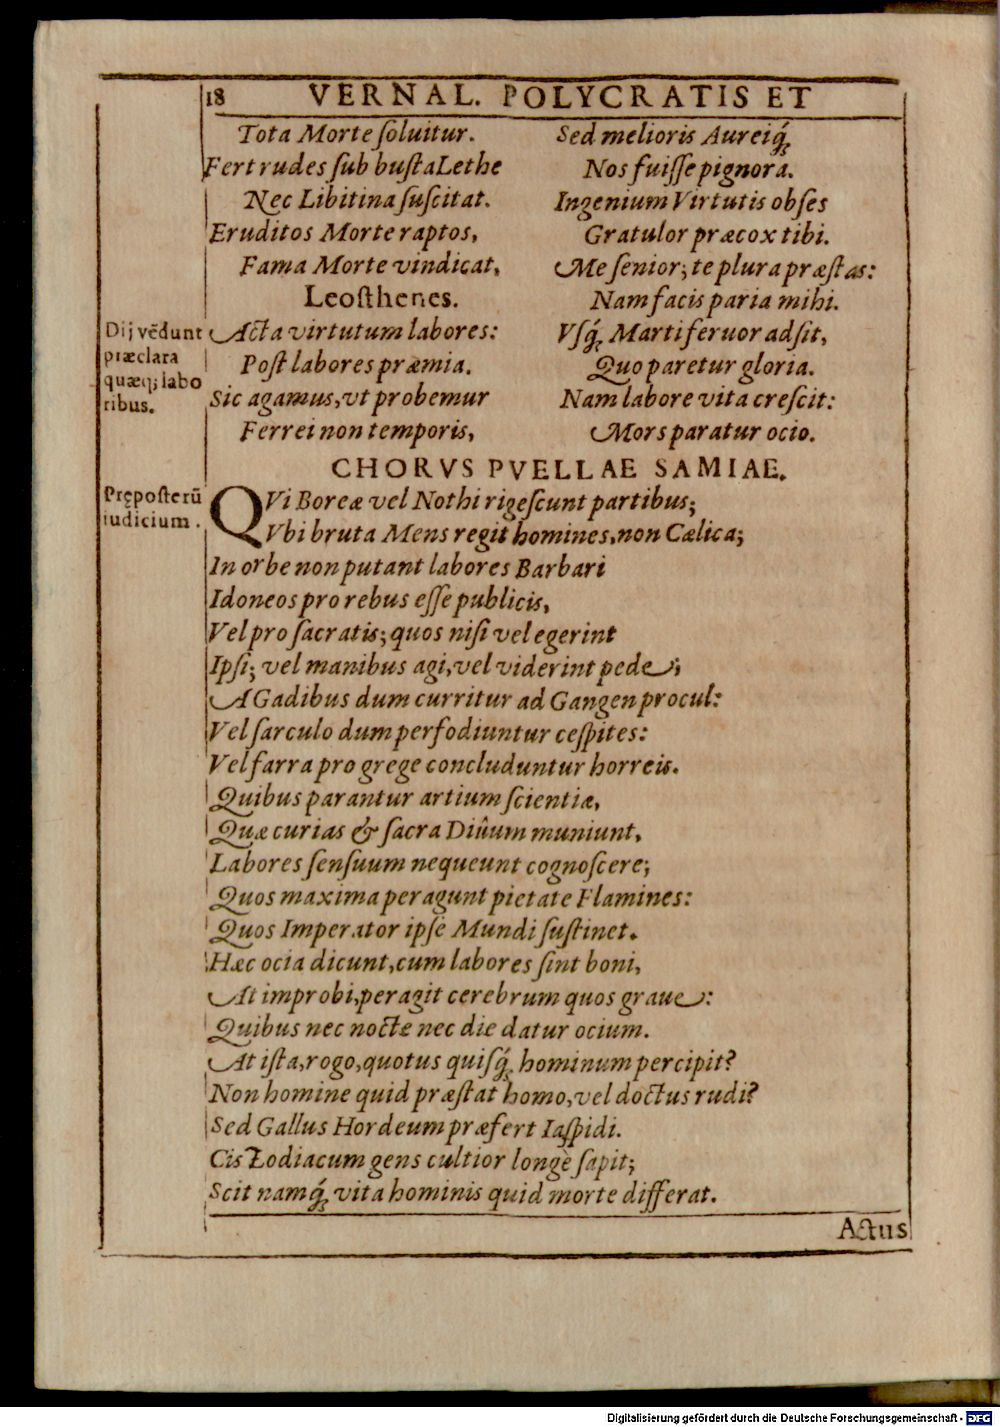 18 VERNAL. POLYCRATIS ET
Tota Morte ſoluitur.
Fert rudes ſub buſta Lethe
Nec Libitina ſuſcitat.
Eruditos Morte raptos,
Fama Morte vindicat.
Leoſthenes.
Dij vẽdunt
præclara
quæq; labo
ribus.
Acta virtutum labores:
Poſt labores præmia.
Sic agamus, vt probemur
Ferrei non temporis,
Sed melioris Aureiq́;
Nos fuiſſe pignora.
Ingenium Virtutis obſes
Gratulor præcox tibi.
Me ſenior; te plura præſtas:
Nam facis paria mihi.
Vſq́; Marti feruor adſit,
Quo paretur gloria.
Nam labore vita creſcit:
Mors paratur ocio.
CHORVS PVELLAE SAMIAE.
Prępoſterũ
iudicium.
QVi Boreæ vel Nothi rigeſcunt partibus;
Vbi bruta Mens regit homines, non Cælica;
In orbe non putant labores Barbari
Idoneos pro rebus eſſe publicis,
Vel pro ſacratis; quos niſi vel egerint
Ipſi; vel manibus agi, vel viderint pede;
A Gadibus dum curritur ad Gangen procul:
Vel ſarculo dum perfodiuntur ceſpites:
Vel farra pro grege concluduntur horreis.
Quibus parantur artium ſcientiæ,
Quæ curias & ſacra Diûum muniunt,
Labores ſenſuum nequeunt cognoſcere;
Quos maxima peragunt pietate Flamines:
Quos Imperator ipſe Mundi ſuſtinet.
Hæc ocia dicunt, cum labores ſint boni,
At improbi, peragit cerebrum quos graue:
Quibus nec nocte nec die datur ocium.
At iſta, rogo, quotus quiſq́; hominum percipit?
Non homine quid præſtat homo, vel doctus rudi?
Sed Gallus Hordeum præfert Iaſpidi.
Cis Zodiacum gens cultior longè ſapit;
Scit namq́; vita hominis quid morte differat.
Actus
Digitalisierung gefördert durch die Deutsche Forschungsgemeinschaft - DFG